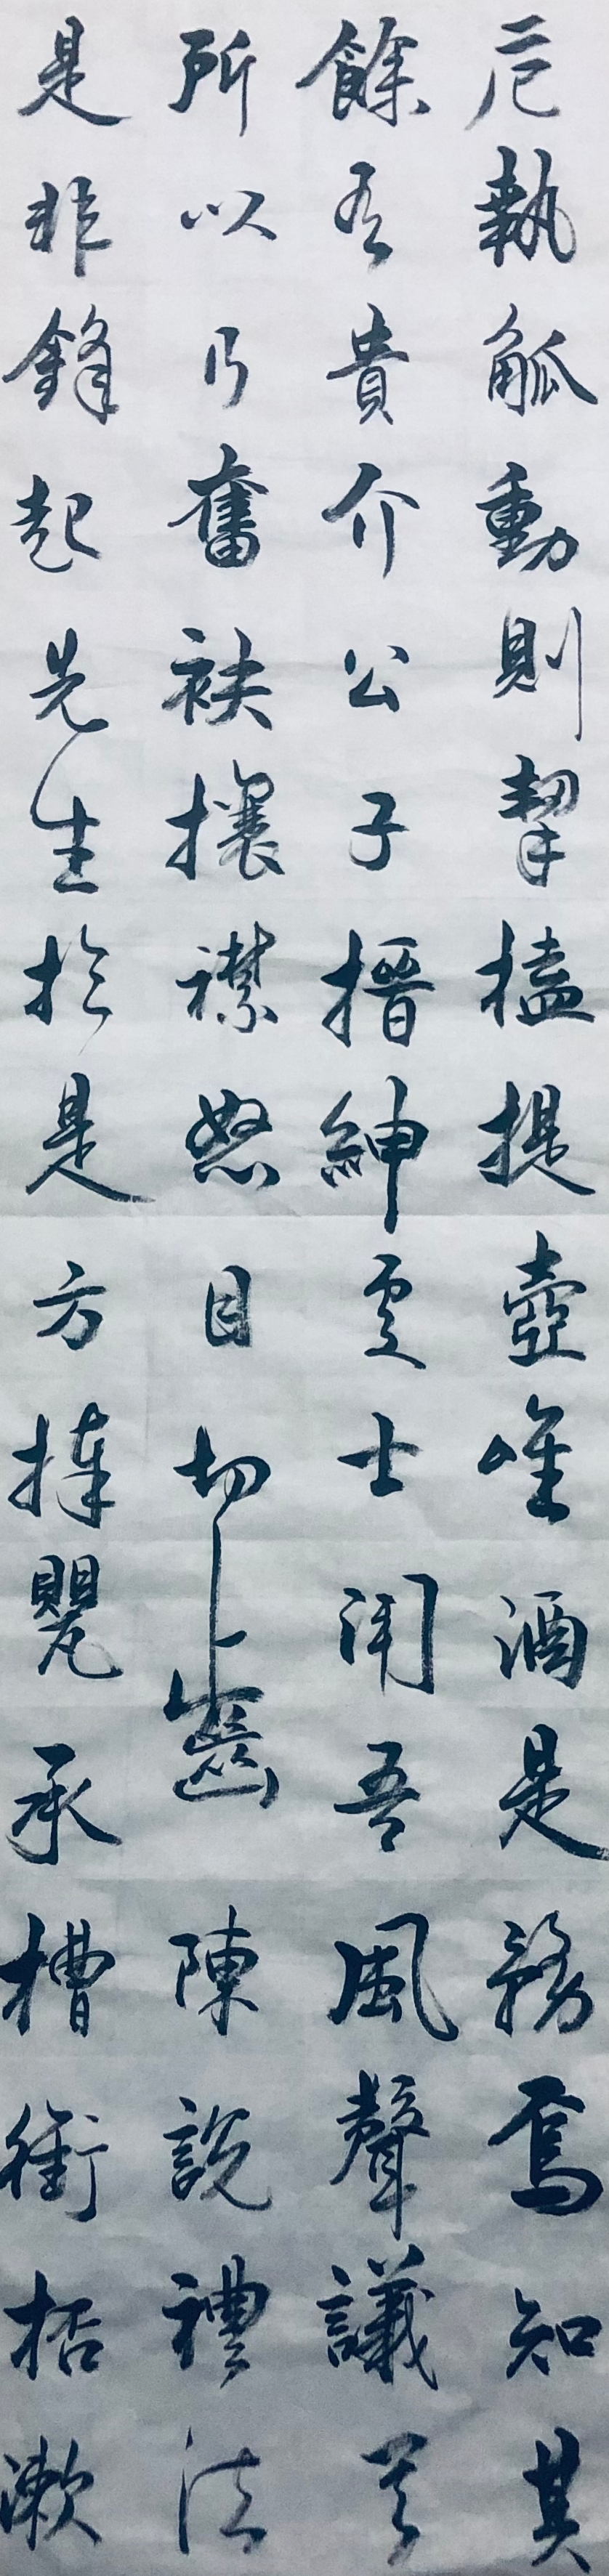 卮執觚動則挈榼提壺唯酒是務焉知其
餘有貴介公子搢紳處士聞吾風聲議其
所以乃奮袂攘襟怒目切齒陳說禮法
是非鋒起先生於是方捧罌承槽銜杯漱